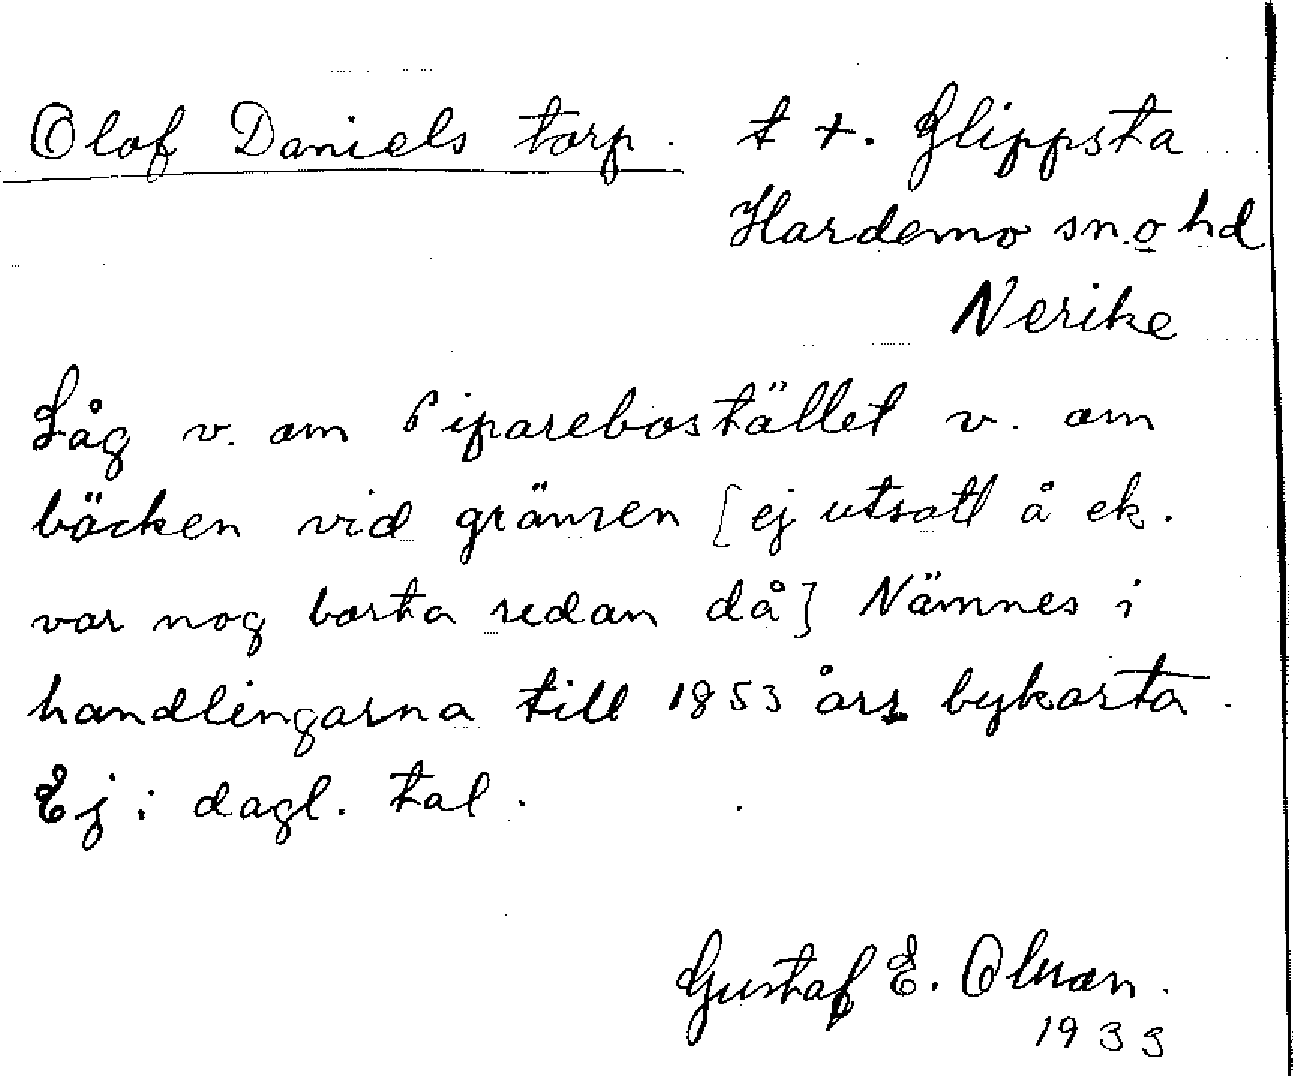 Olof Daniels torp. t +. Glippsta
Hardemo sn. o hd
Nerike
Låg v. om Piparebostället v. om
bäcken vid gränsen [ej utsatt å ek.
var nog borta redan då] Nämnes i
handlingarna till 1853 års bykarta.
Ej i dagl. tal.
Gustaf E. Olsson.
1933